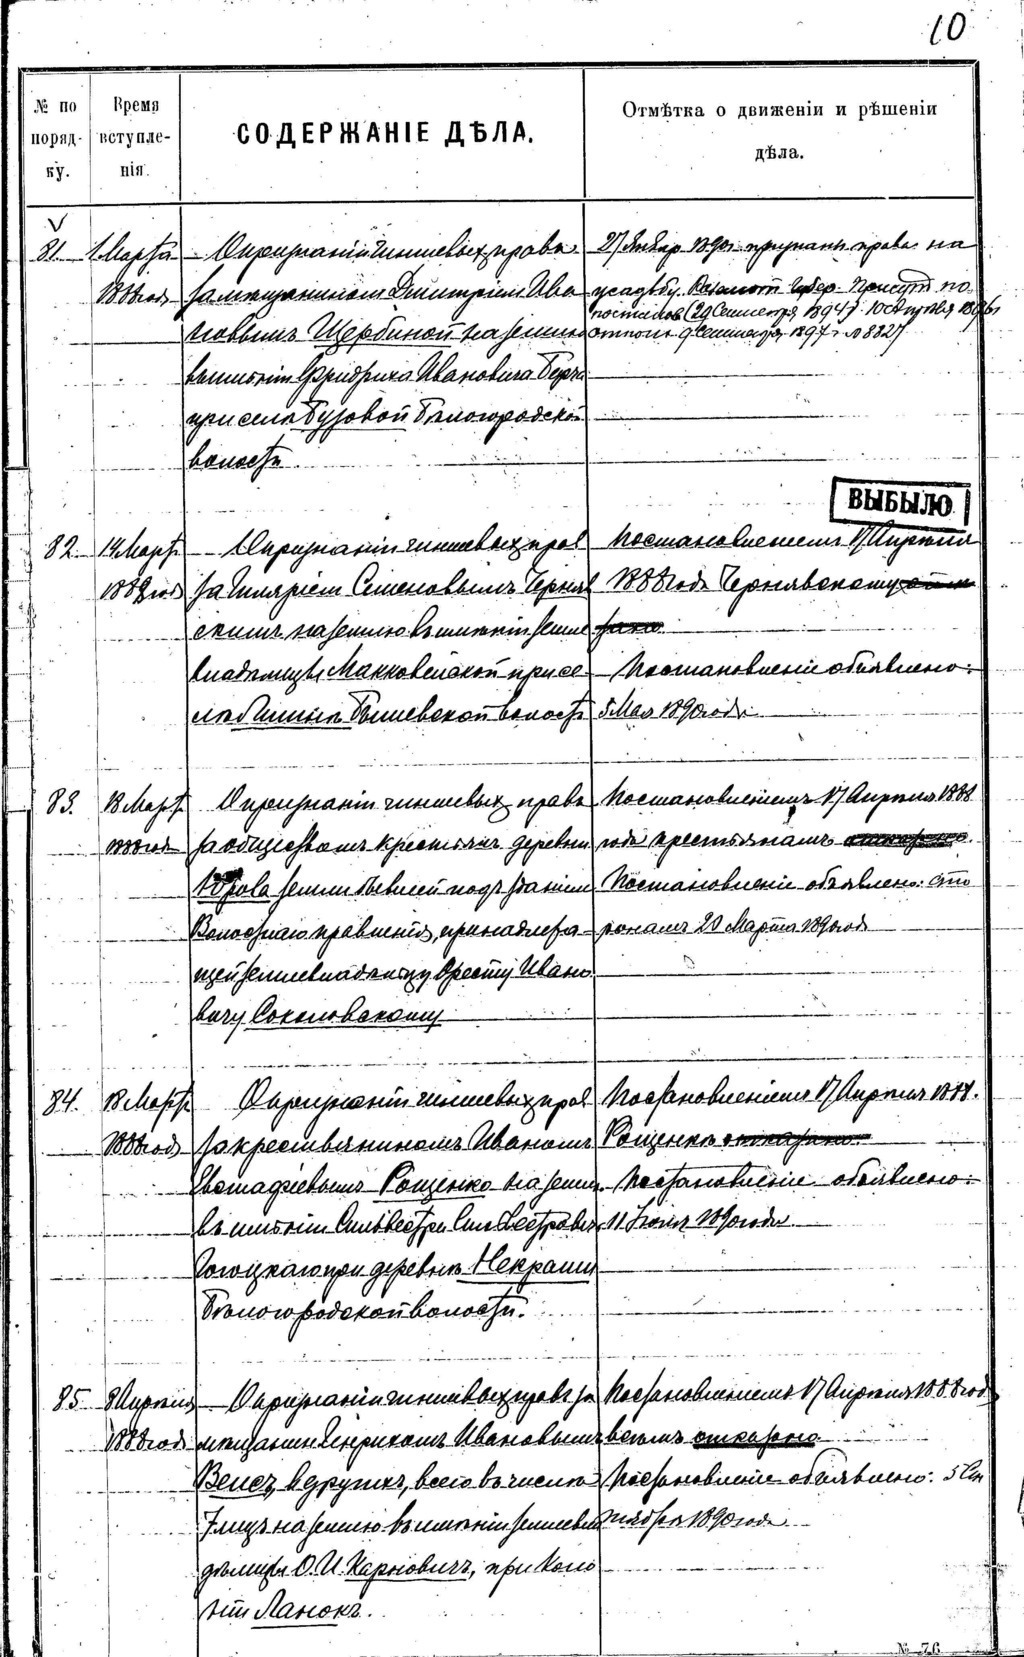 10
№ по порядку.
Время вступленія.
СОДЕРЖАНІЕ ДѢЛА.
Отмѣтка о движеніи и рѣшеніи дѣла.
81.
1 Марта
1888 года
О признаніи чиншевыхъ правъ
за мѣщаниномъ Дмитріемъ Ива
новымъ Щербиной на землю
въ имѣніи Фридриха Ивановича
при селѣ Бузовой Бѣлогородской
волости
27 Января 1890 г. признаны права на
усадьбу.
29 Сентября 1894 г. 10 Апрѣля 1896 г.
9 Сентября 1897 г. № 8827
ВЫБЫЛО
82.
14 Марта
1888 года
О признаніи чиншевыхъ правъ
за Иляріем Семеновымъ Черняв
скимъ на землю въ имѣніи земле
владѣлицы Маккавейской при се
лѣ Бышевской волости
Постановленіемъ 17 Апрѣля
1888 года Чернявскому отка
зано.
Постановленіе объявлено:
5 Мая 1890 года
83.
18 Марта
1888 года
О признаніи чиншевыхъ правъ
за обществомъ крестьянъ деревни
Юрова земли бывшей подъ зданіем
Волостнаго правленія, принадлежа
щей землевладѣльцу Оресту Ивано
вичу Соколовскому
Постановленіемъ 17 Апрѣля 1888
года крестьянамъ отказано.
Постановленіе объявлено: сто
ронамъ 20 Марта 1890 года
84.
18 Марта
1888 года
О признаніи чиншевыхъ правъ
за крестьяниномъ Иваномъ
Евстафіевымъ Рощенко на землю
въ имѣніи Сильвестра Сильвестровича
Гогоцкаго при деревнѣ Некраши
Бѣлогородской волости.
Постановленіемъ 17 Апрѣля 1888.
Рощенкѣ отказано.
Постановленіе объявлено:
11 Іюня 1890 года
85.
8 Апрѣля
1888 года
О признаніи чиншевыхъ правъ за
мѣщанин Генрихомъ Ивановымъ
и другихъ, всего въ числѣ
7 лицъ на землю въ имѣніи землевла
дѣлицы О. И. Карповичъ, при Коло
ніи Ланокъ.
Постановленіемъ 17 Апрѣля 1888 года
всѣмъ отказано
Постановленіе объявлено: 5 Сен
тября 1890 года
№ 76